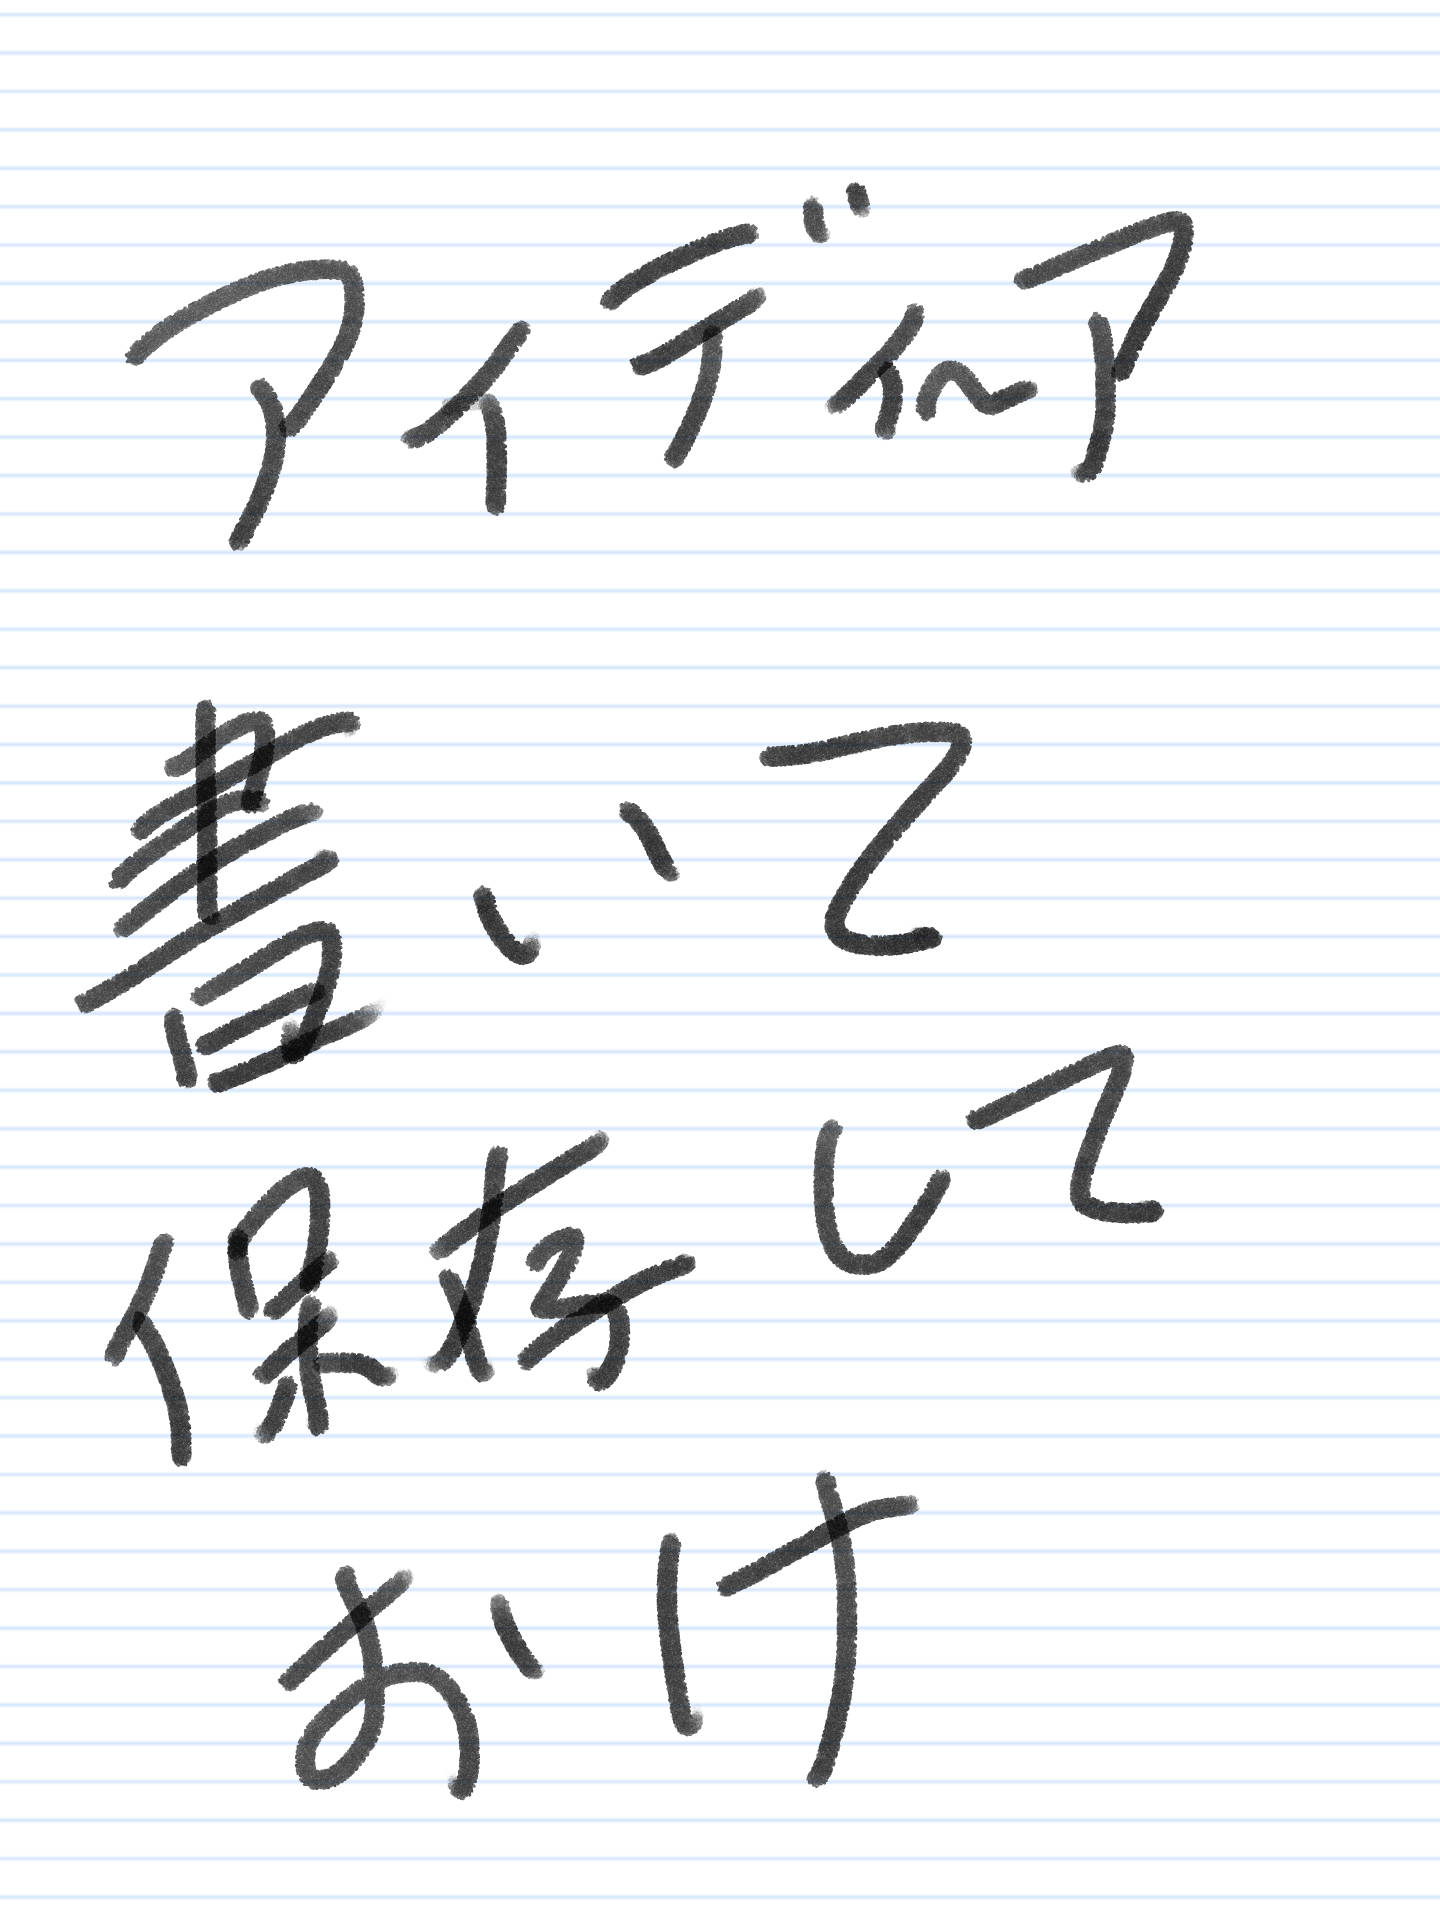 アイディ〜ア
書いて
保存して
おけ